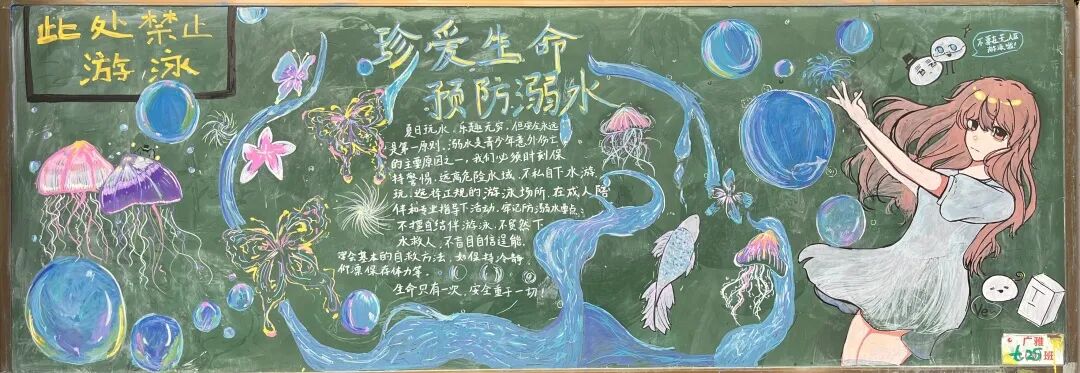 此处禁止
游泳
珍爱生命
预防溺水
夏日玩水，乐趣无穷，但安全永远
是第一原则。溺水是青少年意外伤亡
的主要原因之一，我们必须时刻保
持警惕，远离危险水域，不私自下水游
玩，选择正规的游泳场所，在成人陪
伴和专业指导下活动，牢记防溺水要点：
不擅自结伴游泳，不贸然下
水救人，不盲目自信逞能，
学会基本的自救方法，如保持冷静，
仰漂保存体力等。
生命只有一次，安全重于一切！
不要在无人区
游泳哦！
Ve
广雅
七25班